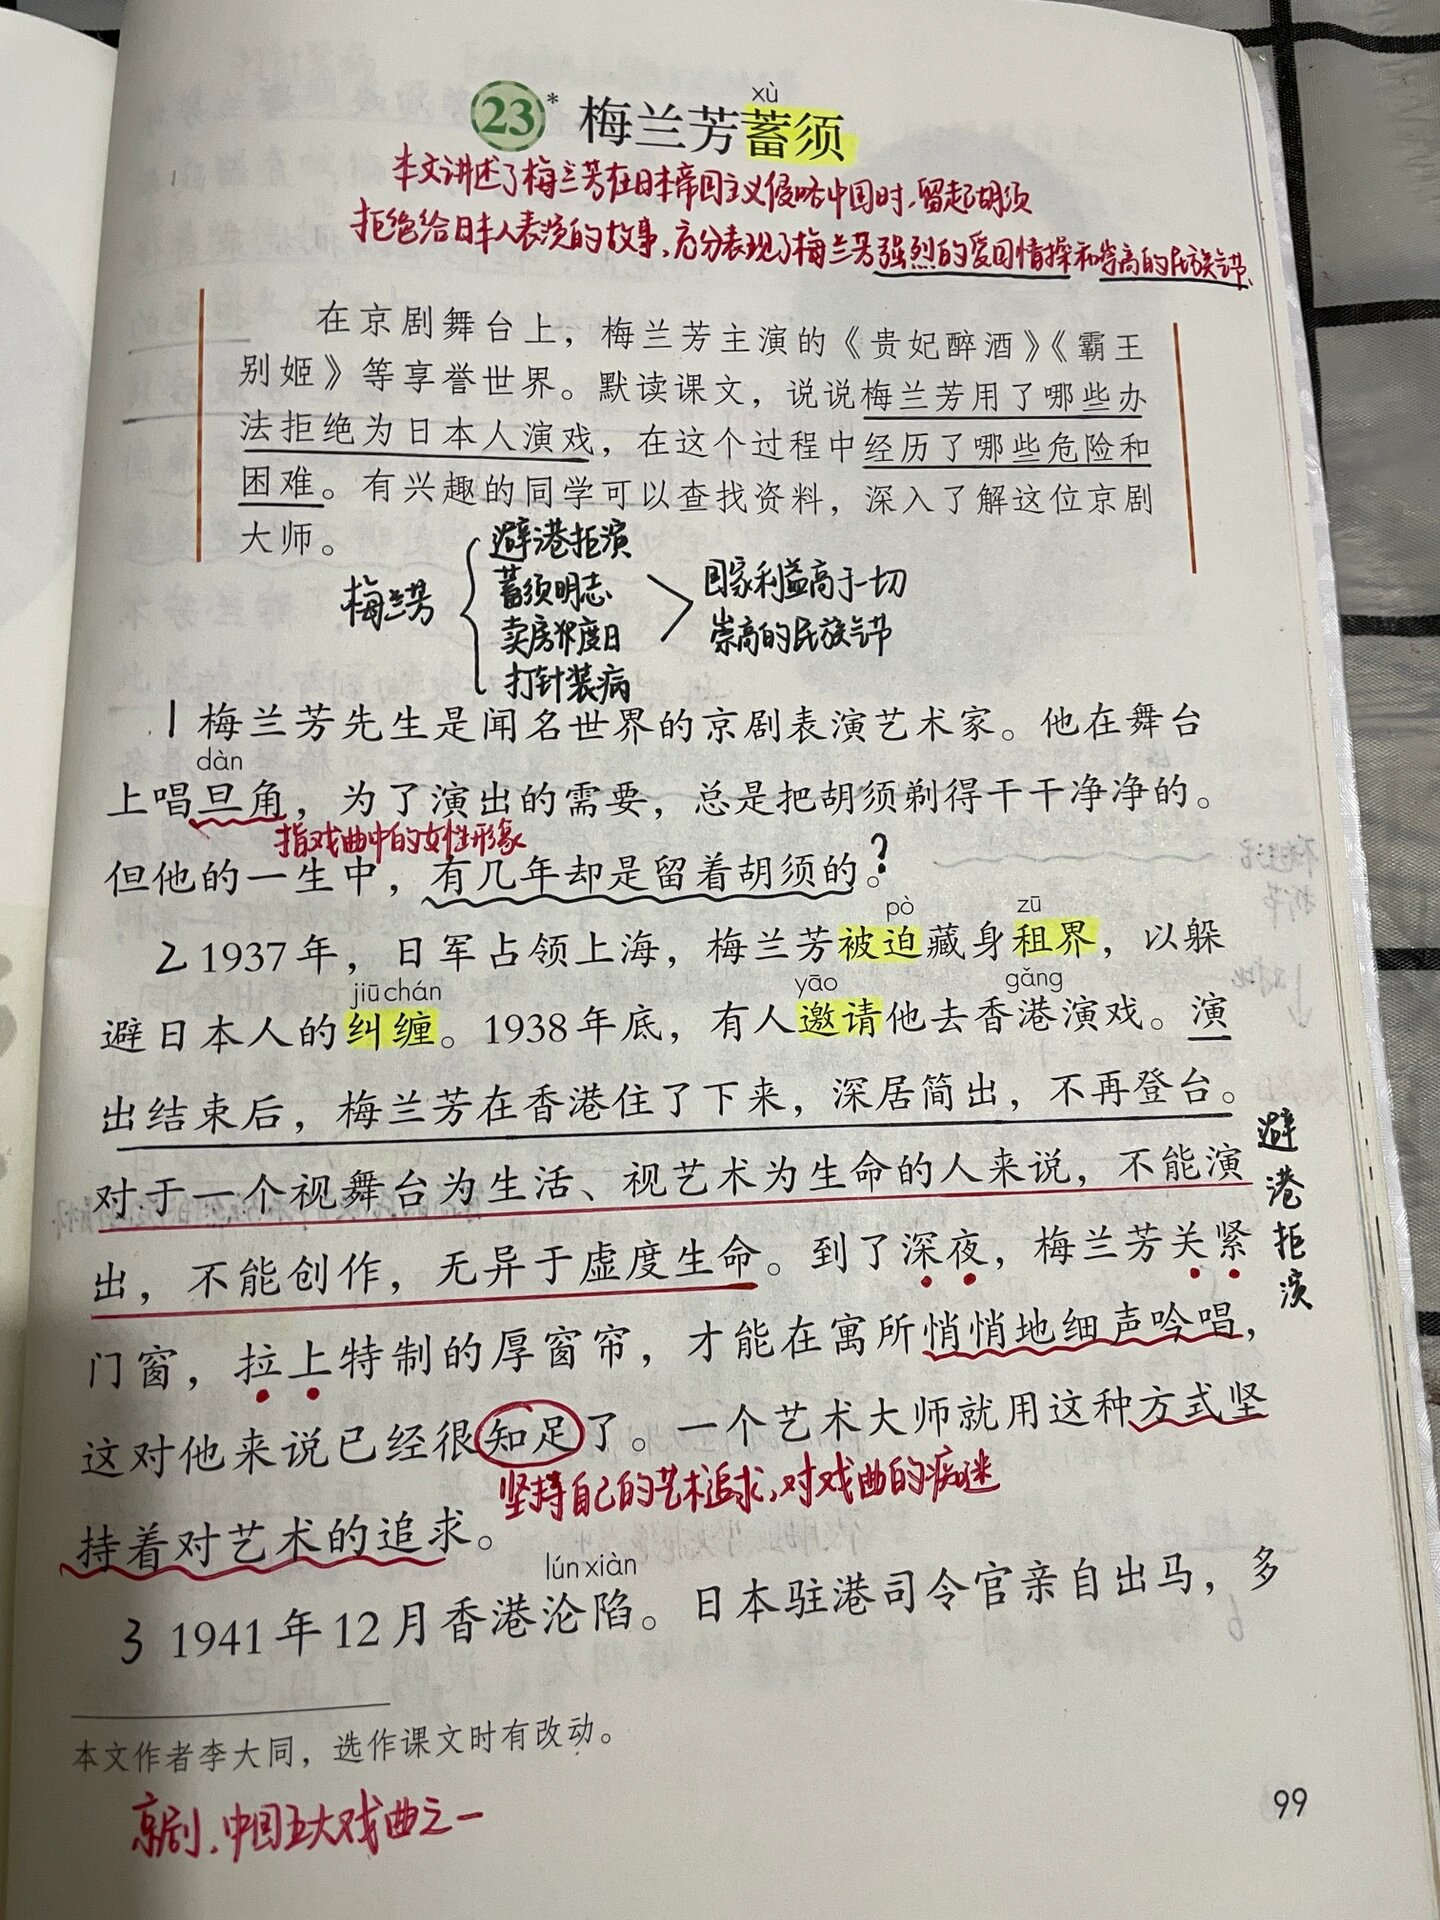 xù
23* 梅兰芳蓄须
本文讲述了梅兰芳在日本帝国主义侵略中国时,留起胡须
拒绝给日本人表演的故事,充分表现了梅兰芳强烈的爱国情操和崇高的民族气节、
在京剧舞台上，梅兰芳主演的《贵妃醉酒》《霸王
别姬》等享誉世界。默读课文，说说梅兰芳用了哪些办
法拒绝为日本人演戏，在这个过程中经历了哪些危险和
困难。有兴趣的同学可以查找资料，深入了解这位京剧
大师。
梅兰芳
避港拒演
蓄须明志
卖房度日
打针装病
国家利益高于一切
崇高的民族气节
1 梅兰芳先生是闻名世界的京剧表演艺术家。他在舞台
dàn
上唱旦角，为了演出的需要，总是把胡须剃得干干净净的。
指戏曲中的女性形象
但他的一生中，有几年却是留着胡须的。?
pò zū
2 1937年，日军占领上海，梅兰芳被迫藏身租界，以躲
jiū chán yāo gǎng
避日本人的纠缠。1938年底，有人邀请他去香港演戏。演
出结束后，梅兰芳在香港住了下来，深居简出，不再登台。
对于一个视舞台为生活、视艺术为生命的人来说，不能演
出，不能创作，无异于虚度生命。到了深夜，梅兰芳关紧
避港拒演
门窗，拉上特制的厚窗帘，才能在寓所悄悄地细声吟唱，
这对他来说已经很知足了。一个艺术大师就用这种方式坚
坚持自己的艺术追求,对戏曲的痴迷
持着对艺术的追求。
lún xiàn
3 1941年12月香港沦陷。日本驻港司令官亲自出马，多
本文作者李大同，选作课文时有改动。
99
京剧,中国五大戏曲之一